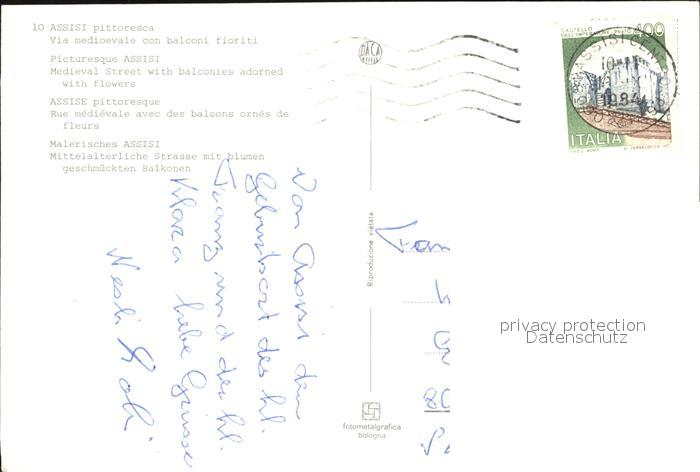 10 ASSISI pittoresca
Via medioevale con balconi fioriti
Picturesque ASSISI
Medieval Street with balconies adorned
with flowers
ASSISE pittoresque
Rue médiévale avec des balcons ornés de
fleurs
Malerisches ASSISI
Mittelalterliche Strasse mit blumen
geschmückten Balkonen
Von Assisi dem
Geburtsort des hl.
Franz und der hl.
Klara liebe Grüsse
Riproduzione vietata
fotometalgrafica
bologna
DACA
400
ITALIA
ASSISI CENTRO
1984
Fam
80
privacy protection
Datenschutz